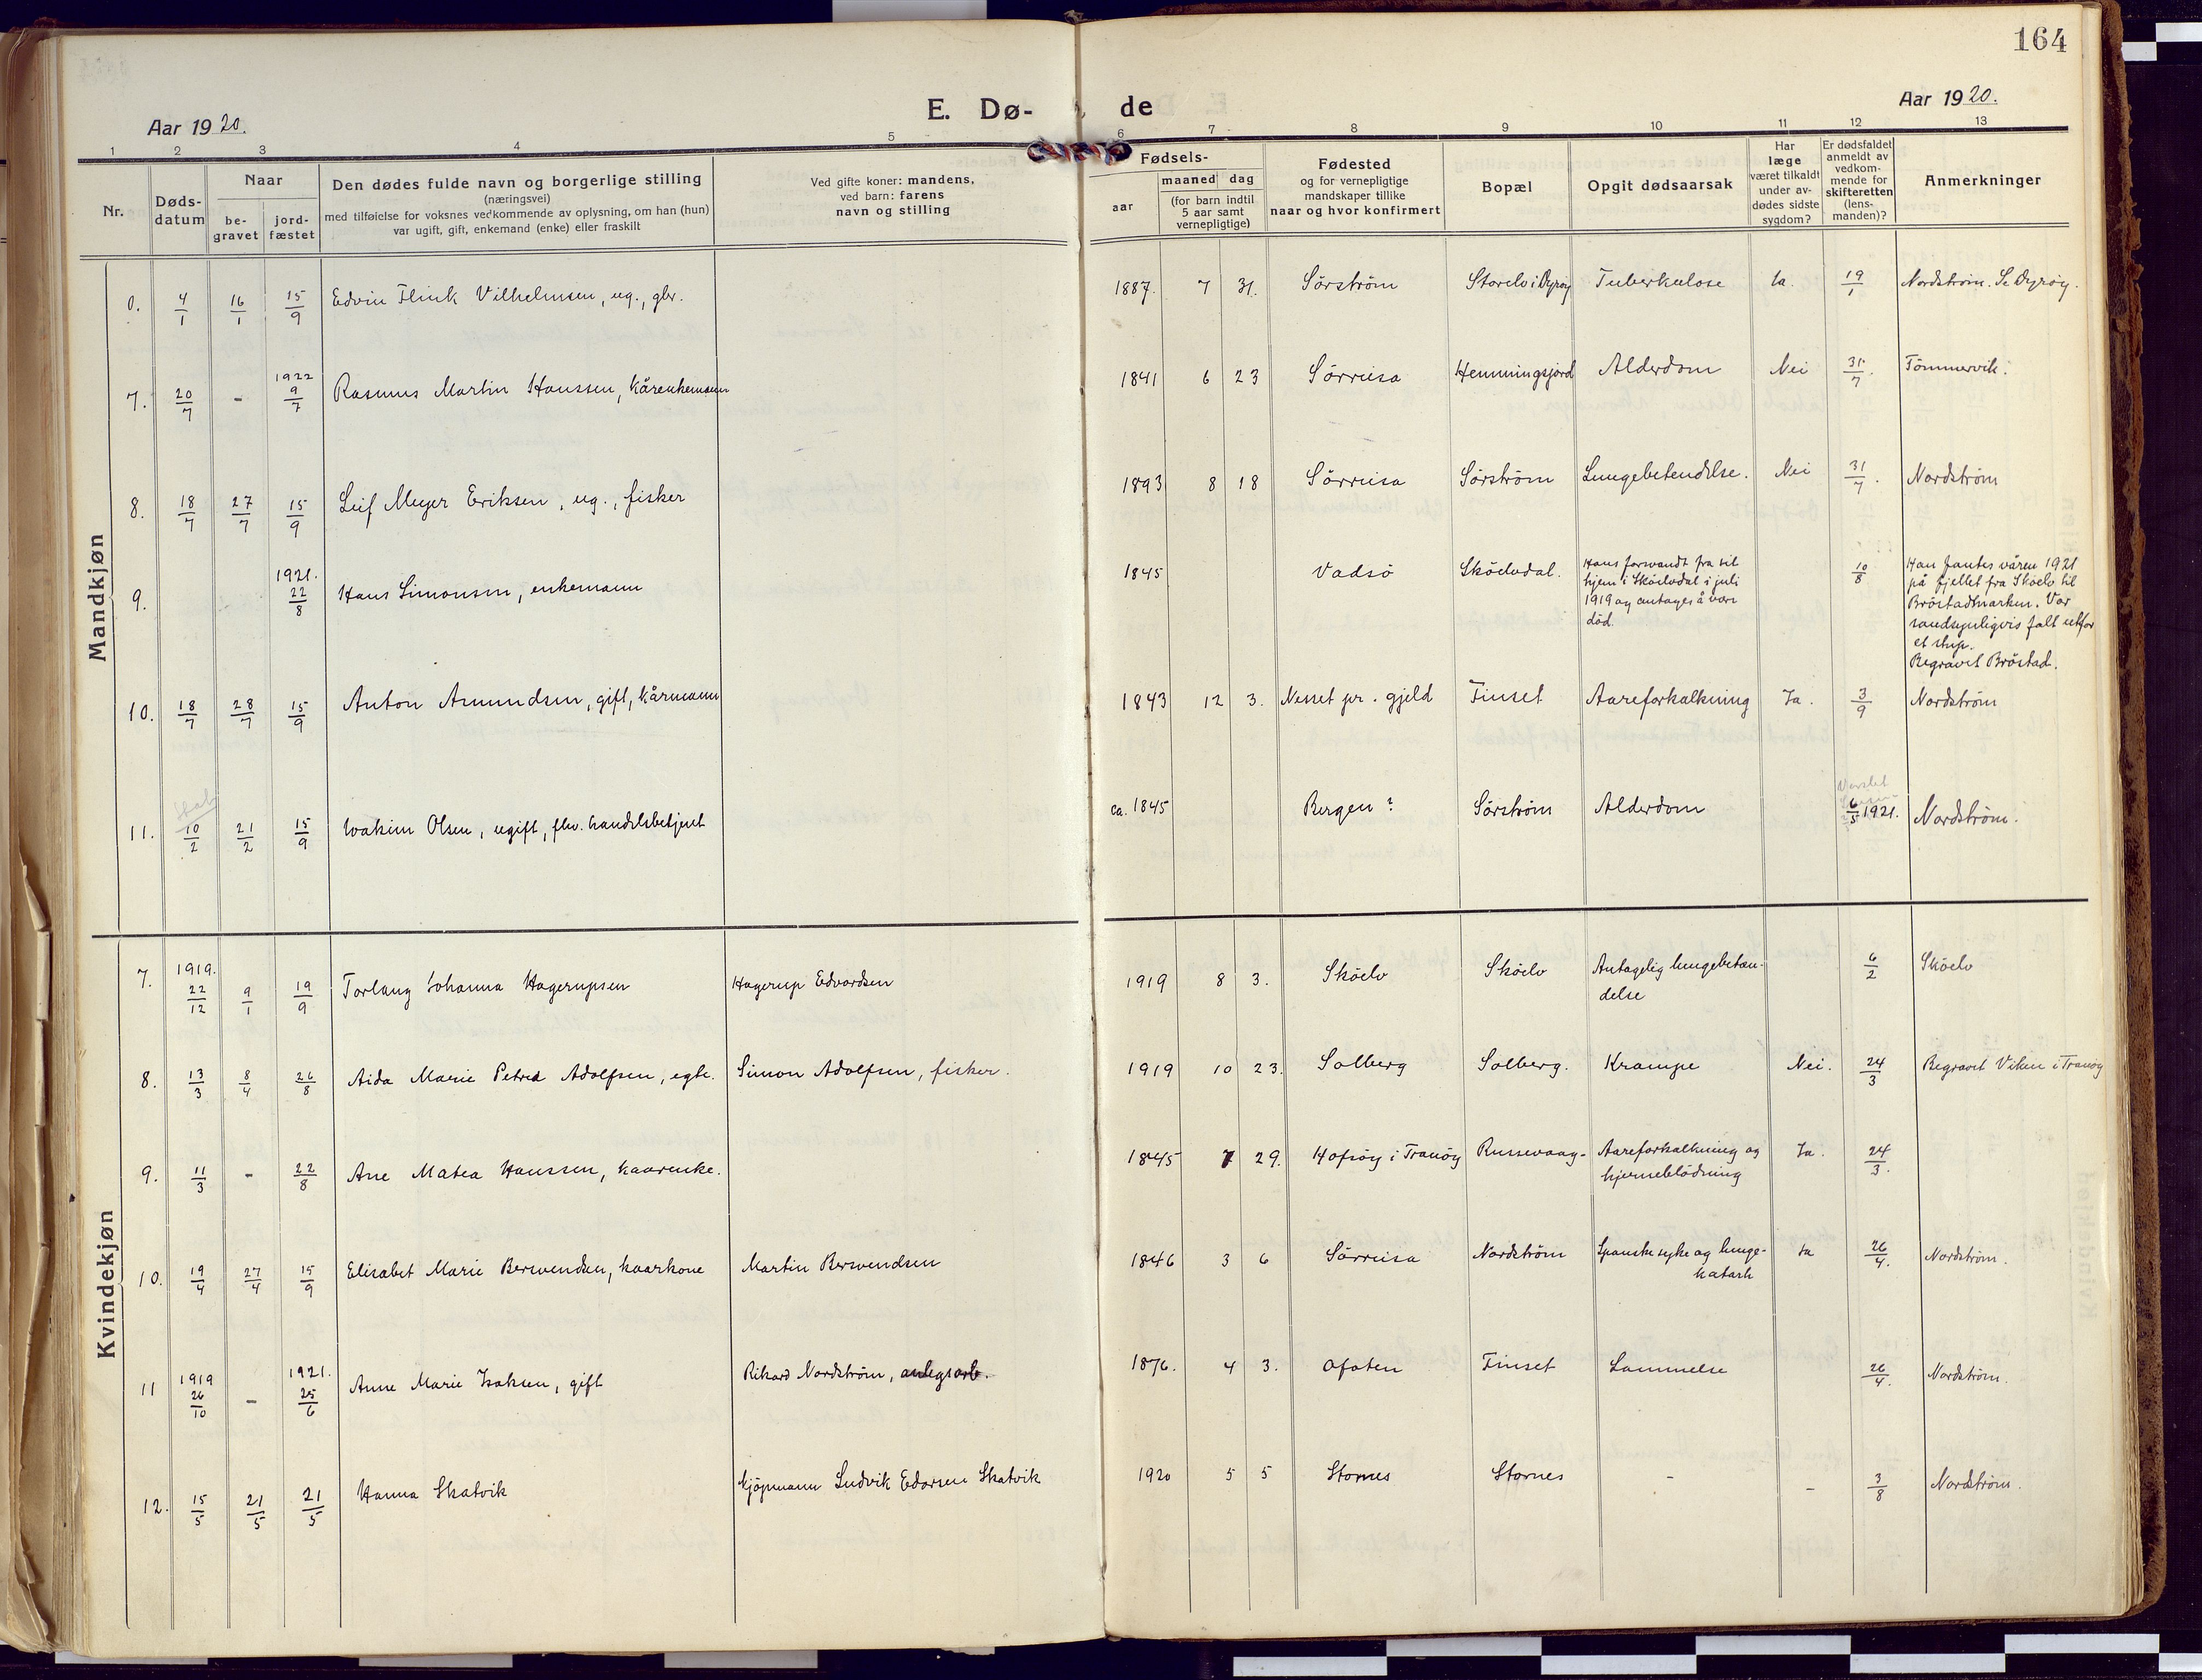 164
E. Dø- de
Aar 1920.
Aar 1920.
1 2 3 4 5 6 7 8 9 10 11 12 13
Nr.
Døds-
datum
Naar
be-
gravet
jord-
fæstet
Den dødes fulde navn og borgerlige stilling
(næringsvei)
med tilføielse for voksnes vedkommende av oplysning, om han (hun)
var ugift, gift, enkemand (enke) eller fraskilt
Ved gifte koner: mandens,
ved barn: farens
navn og stilling
Fødsels-
aar
maaned dag
(for barn indtil
5 aar samt
vernepligtige)
Fødested
og for vernepligtige
mandskaper tillike
naar og hvor konfirmert
Bopæl
Opgit dødsaarsak
Har
læge
været tilkaldt
under av-
dødes sidste
sygdom?
Er dødsfaldet
anmeldt av
vedkom-
mende for
skifteretten
(lens-
manden)?
Anmerkninger
Mandkjøn
0. 4/1 16/1 15/9 Edvin Flink Vilhelmsen, ug., gbr. 1887. 7 31. Sørstrøm Storelv i Dyrøy Tuberkulose Ja. 19/1 Nordstrøm. Se Dyrøy.
7. 20/7 - 1922 9/7 Rasmus Martin Hanssen, kårenkemann 1841 6 23 Sørreisa Hemmingsjord Alderdom Nei 31/7. Tømmervik.
8. 18/7 27/7 15/9 Leif Meyer Eriksen, ug., fisker 1893 8 18 Sørreisa Sørstrøm Lungebetendelse. Nei 31/7. Nordstrøm
9. 1921. 22/8 Hans Simonsen, enkemann 1845 Vadsö Sköelvdal. Hans forsvandt fra sit
hjem i Sköelvdal i juli
1919 og antages å være
död. 10/8 Han fantes våren 1921
på fjellet fra Sköelv til
Bröstadmarken. Var
sandsynligvis falt utfor
et stup.
Begravet Bröstad.
10. 18/7 28/7 15/9 Anton Amundsen, gift, kårmann 1843 12 3. Nesset pr. gjeld Finset Aareforkalkning Ja. 3/9 Nordstrøm
11. 10/2 21/2 15/9 Joakim Olsen, ugift, fhv. handelsbetjent ca. 1845 Bergen? Sørstrøm Alderdom 6/5 1921. Nordstrøm.
Kvindekjøn
7. 1919. 22/12 9/1 19/9 Torlaug Johanna Hagerupsen Hagerup Edvardsen 1919 8 3. Sköelv Sköelv Antagelig lungebetæn-
delse 6/2 Sköelv
8. 13/3 8/4 26/8 Aida Marie Petrea Adolfsen, egte. Simon Adolfsen, fisker. 1919 10 23. Solberg Solberg. Krampe Nei. 24/3 Begravet Viken i Tranøy
9. 11/3 - 22/8 Ane Matea Hanssen, kaarenke. 1845 7 29. Hofsöy i Tranöy Russevaag- Aareforkalkning og
hjerneblödning Ja. 24/3.
10. 19/4 27/4 15/9 Elisabet Marie Berwendsen, kaarkone Martin Berwendsen 1846 3 6 Sørreisa Nordström Spanske syke og lunge-
katarh Ja 26/4. Nordstrøm.
11 1919 26/10 - 1921. 25/6 Anne Marie Isaksen, gift Rikard Nordstrøm, anlegsarb. 1876. 4 3. Ofoten Finset Lammelse 26/4. Nordstrøm.
12. 15/5 21/5 21/5 Hanna Skatvik kjöpmann Ludvik Edorsen Skatvik 1920 5 5 Stornes Stornes - - 3/8 Nordstrøm.